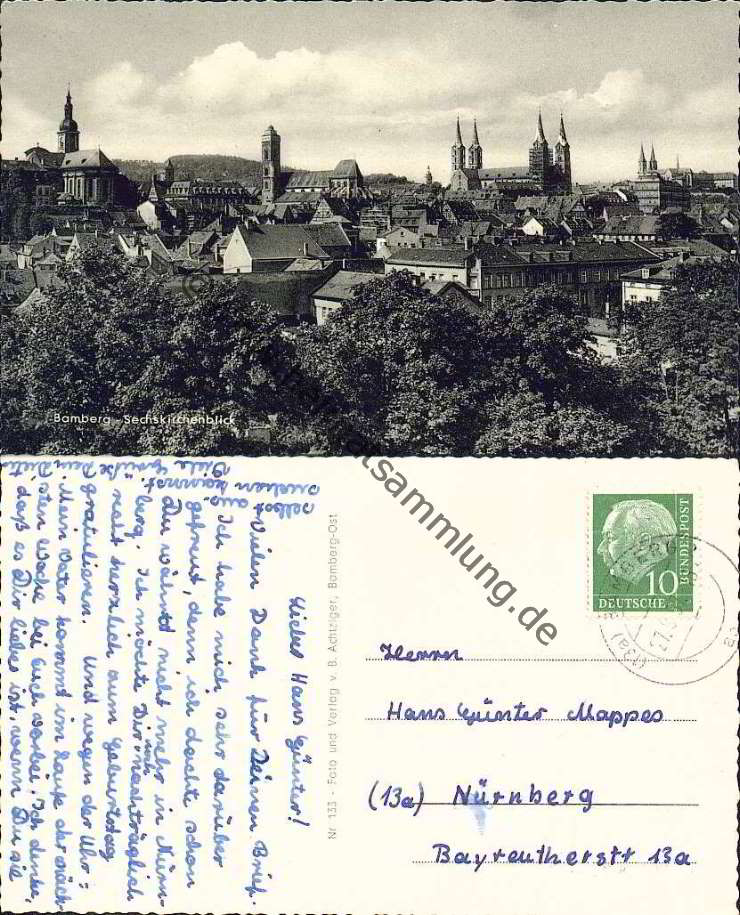 Bamberg - Sechskirchenblick
© heimatsammlung.de
Lieber Hans Günter!
Vielen Dank für Deinen Brief.
Ich habe mich sehr darüber
gefreut, denn ich dachte schon
Du wohnst nicht mehr in Nürn-
berg. Ich möchte Dir noch nachträglich
recht herzlich zum Geburtstag
gratulieren. Und wegen der Uhr:
Mein Vater kommt im Laufe der näch-
sten Woche bei Euch vorbei. Ich denke,
daß es Dir lieber ist, wenn Du sie
selbst aus-
suchen kannst.
Viele Grüße Dein
Nr. 133 - Foto und Verlag v. B. Achtziger, Bamberg-Ost
10
DEUTSCHE
BUNDESPOST
(13a) BAMBERG
Herrn
Hans Günter Mappes
(13a) Nürnberg
Bayreutherstr 13a